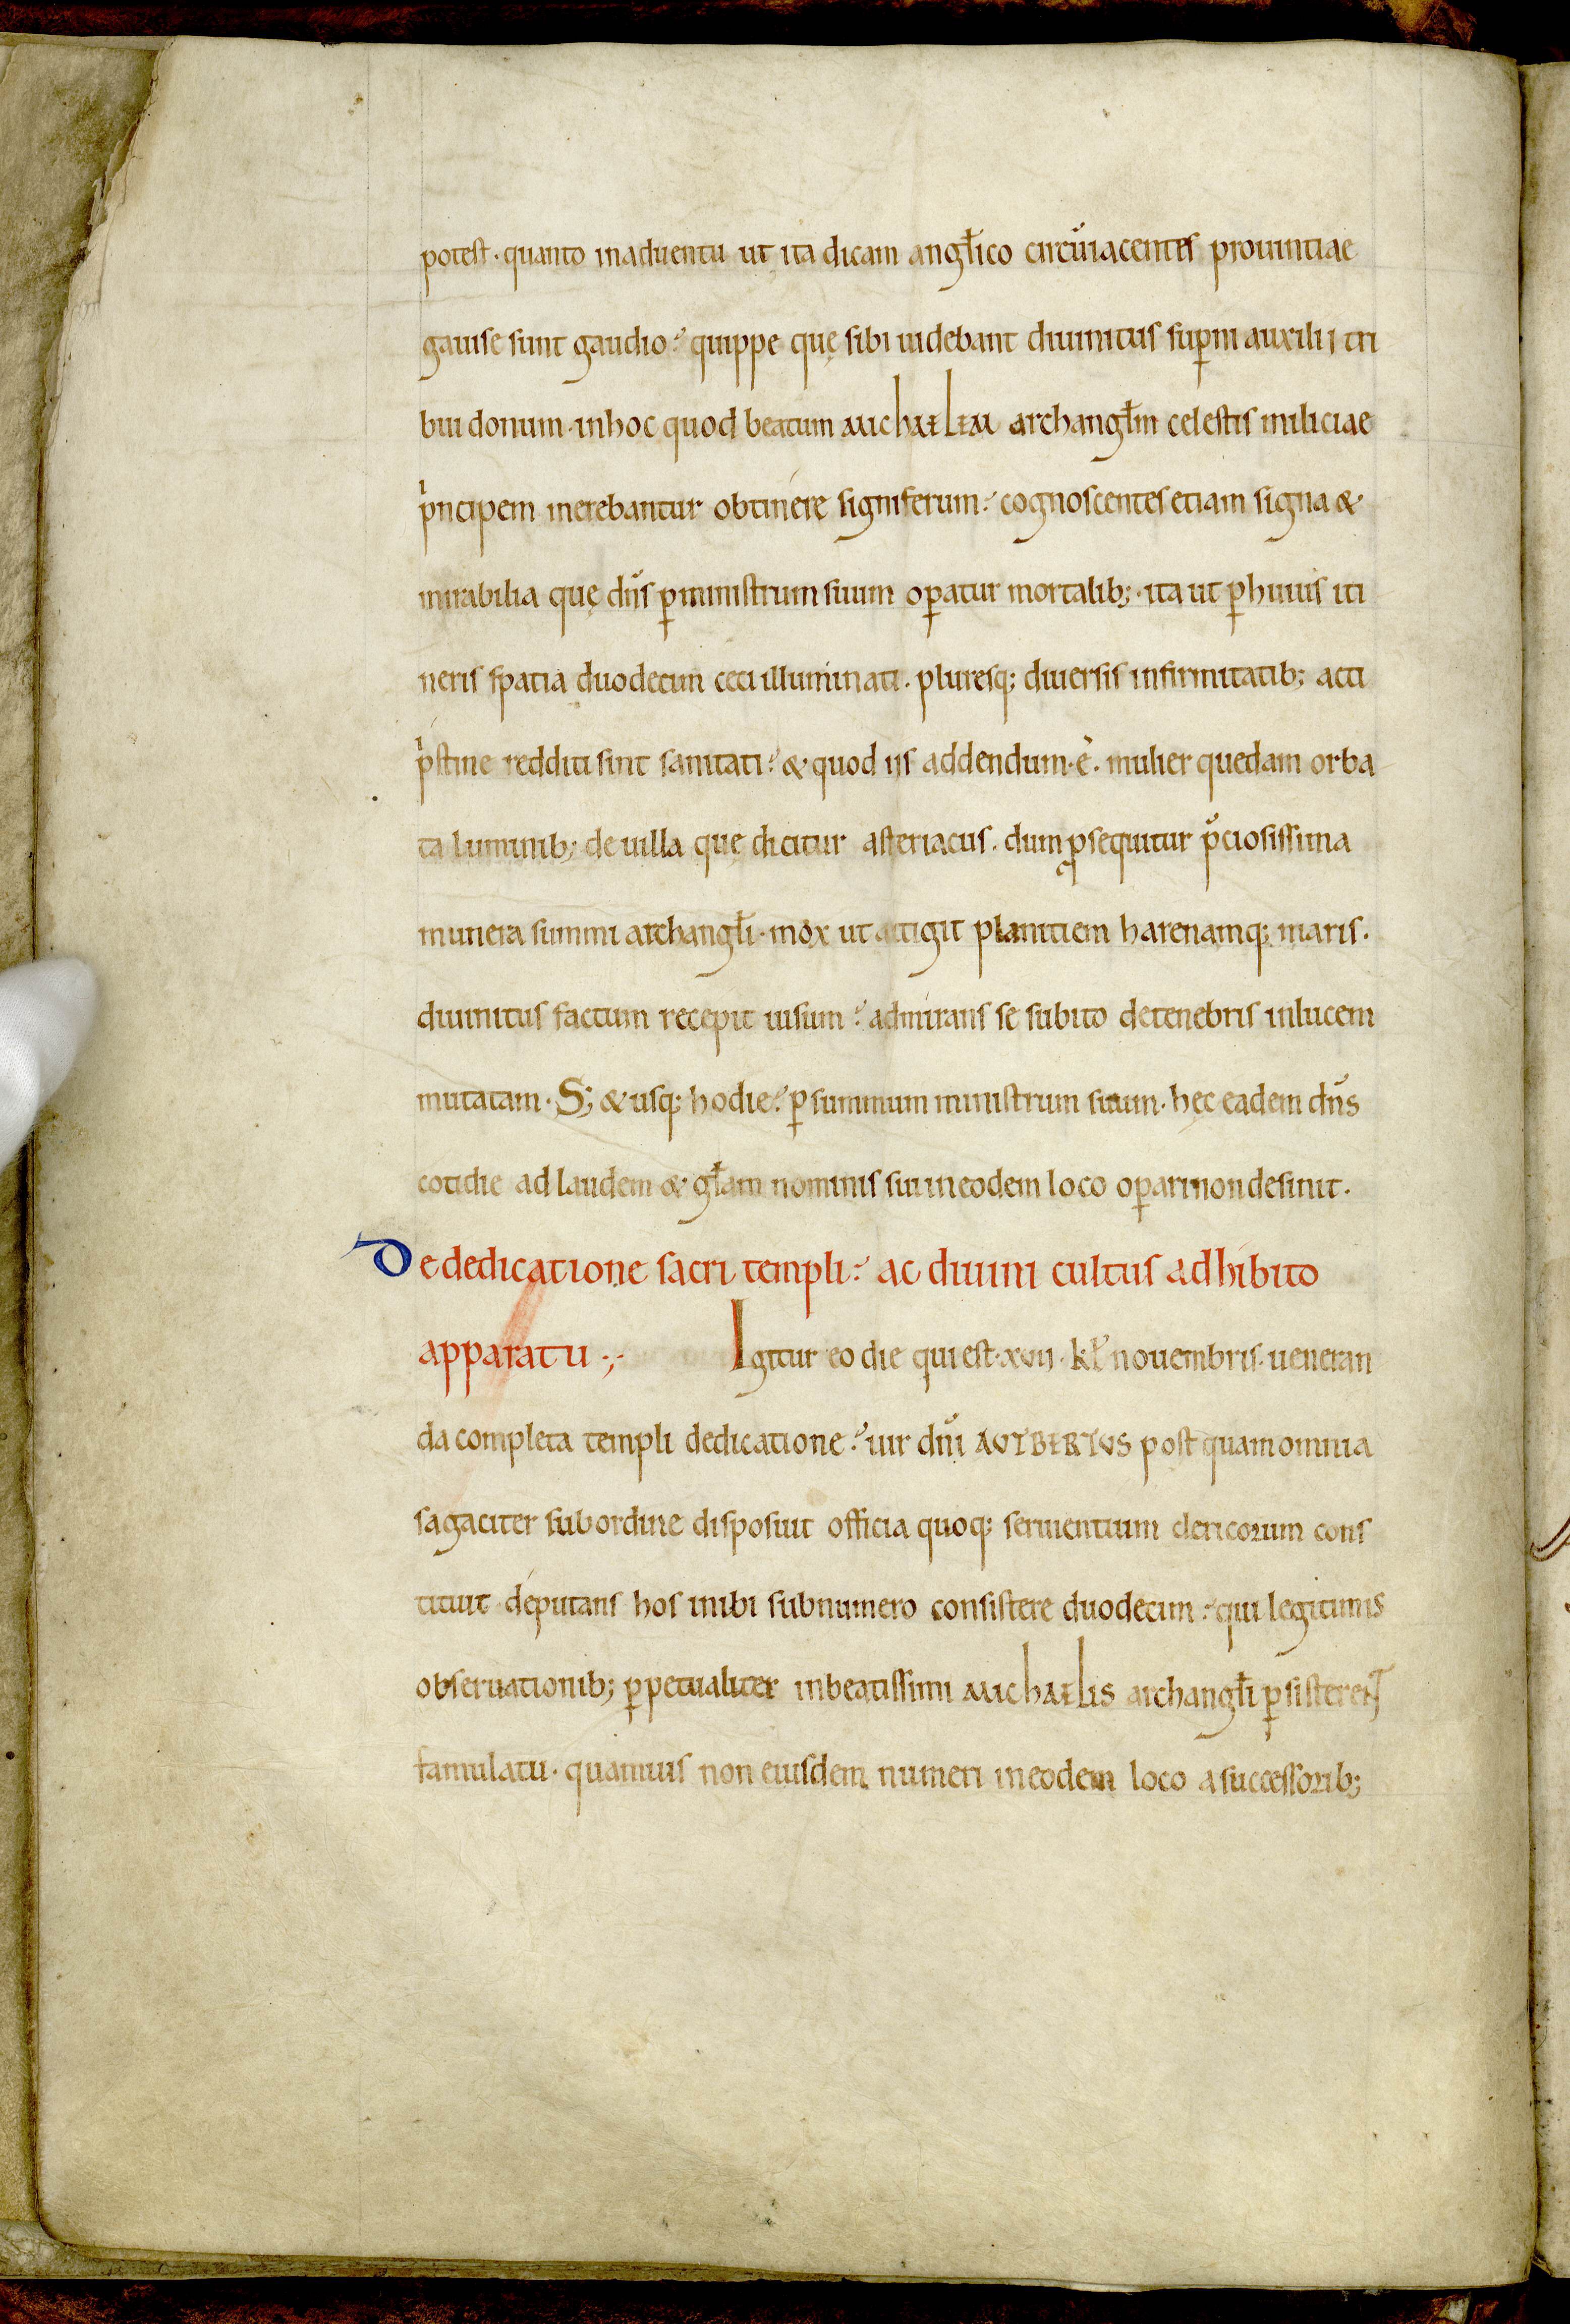 potest · quanto inaduentu ut ita dicam angl̄ico circu̅iacentes prouintiae
gauise sunt gaudio ·̓ quippe quę sibi uidebant diuinitus sup̱ni auxilij tri
bui donum · inhoc quod beatum MICHAELEM archangl̄m celestis miliciae
pͥncipem merebantur obtinere signiferum ·̓ cognoscentes etiam signa &
mirabilia quę dn̄s p̱ministrum suum op̱atur mortalib; · ita ut p̱huius iti
neris spatia duodecim ceci illuminati · pluresq; diuersis infirmitatib; acti
pͥstine redditi sint sanitati ·̓ & quod ijs addendum · ē · mulier quedam orba
ta luminib; de uilla quę dicitur asteriacus · dum ꝓsequitur p̄ciosissima
munera summi archangl̄i · mox ut attigit planitiem harenamq; maris ·
diuinitus factum recepit uisum ·̓ admirans se subito detenebris inlucem
mutatam · S; & usq; hodie ·̓ p̱ summum ministrum suum · hęc eadem dn̄s
cotidie ad laudem & gl̄am nominis sui ineodem loco op̱arinondesinit ·
De dedicatione sacri templi ·̓ ac diuini cultus adhibito
apparatu ·,·  Igitur eo die qui est · xvij · kl̄ nouembris · ueneran
da completa templi dedicatione ·̓ uir dn̄i AUTBERTUS post quam omnia
sagaciter subordine disposuit officia quoq; seruientium clericorum cons
tituit · deputans hos inibi subnumero consistere duodecim ·̓ qui legitimis
obseruationib; p̱petualiter inbeatissimi MICHAELIS archangl̄i p̱sisterent
famulatu · quamuis non eiusdem numeri ineodem loco asuccessorib;